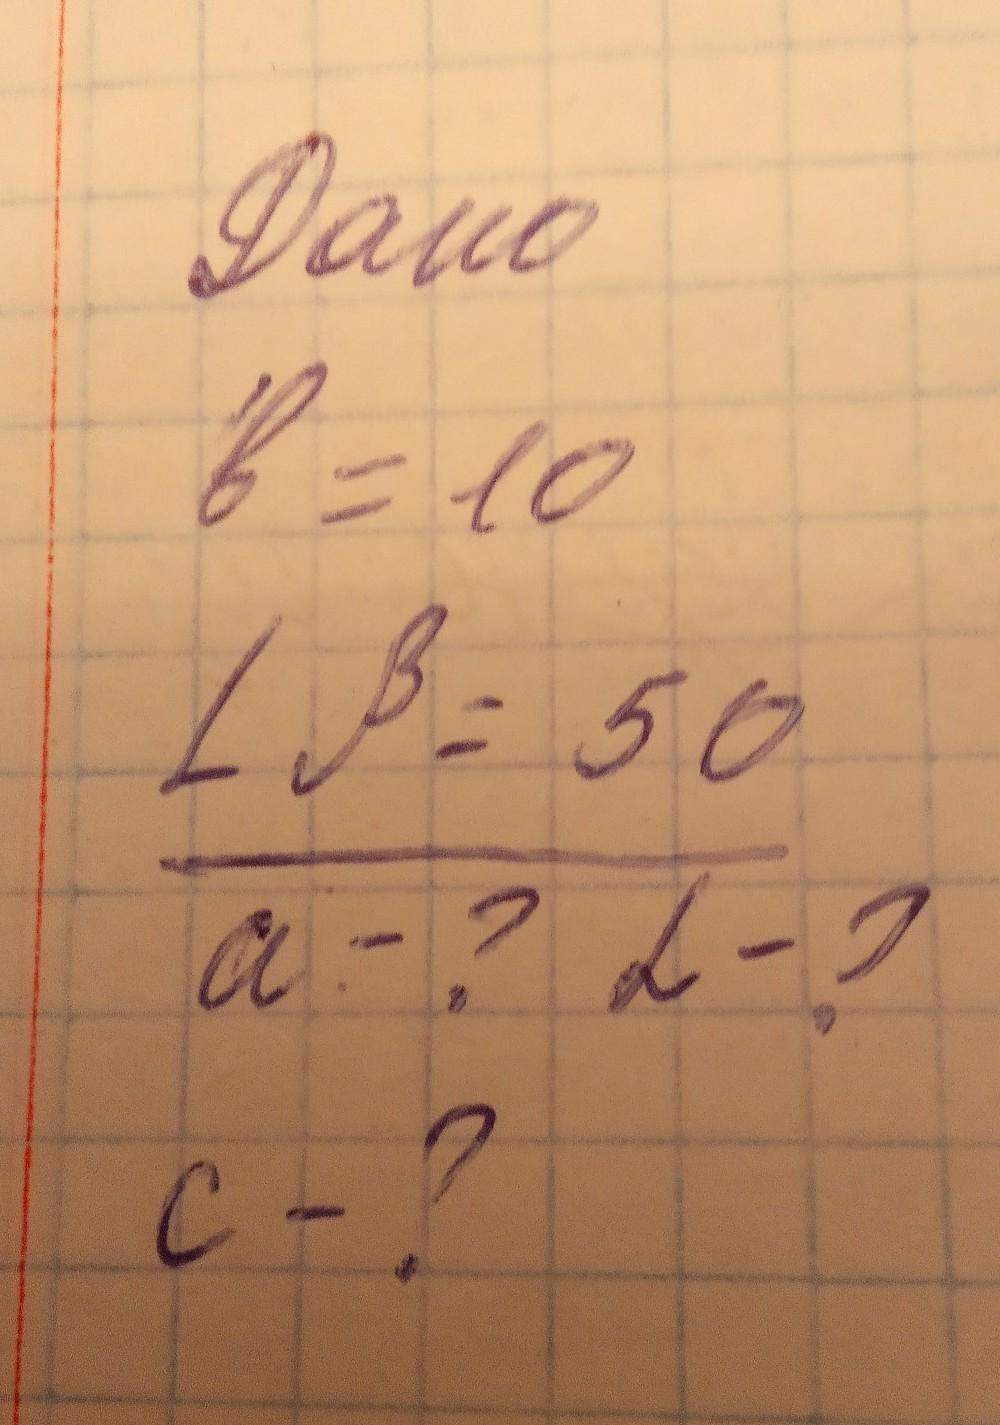 Дано
в = 10
∠β = 50
a - ? α - ?
c - ?